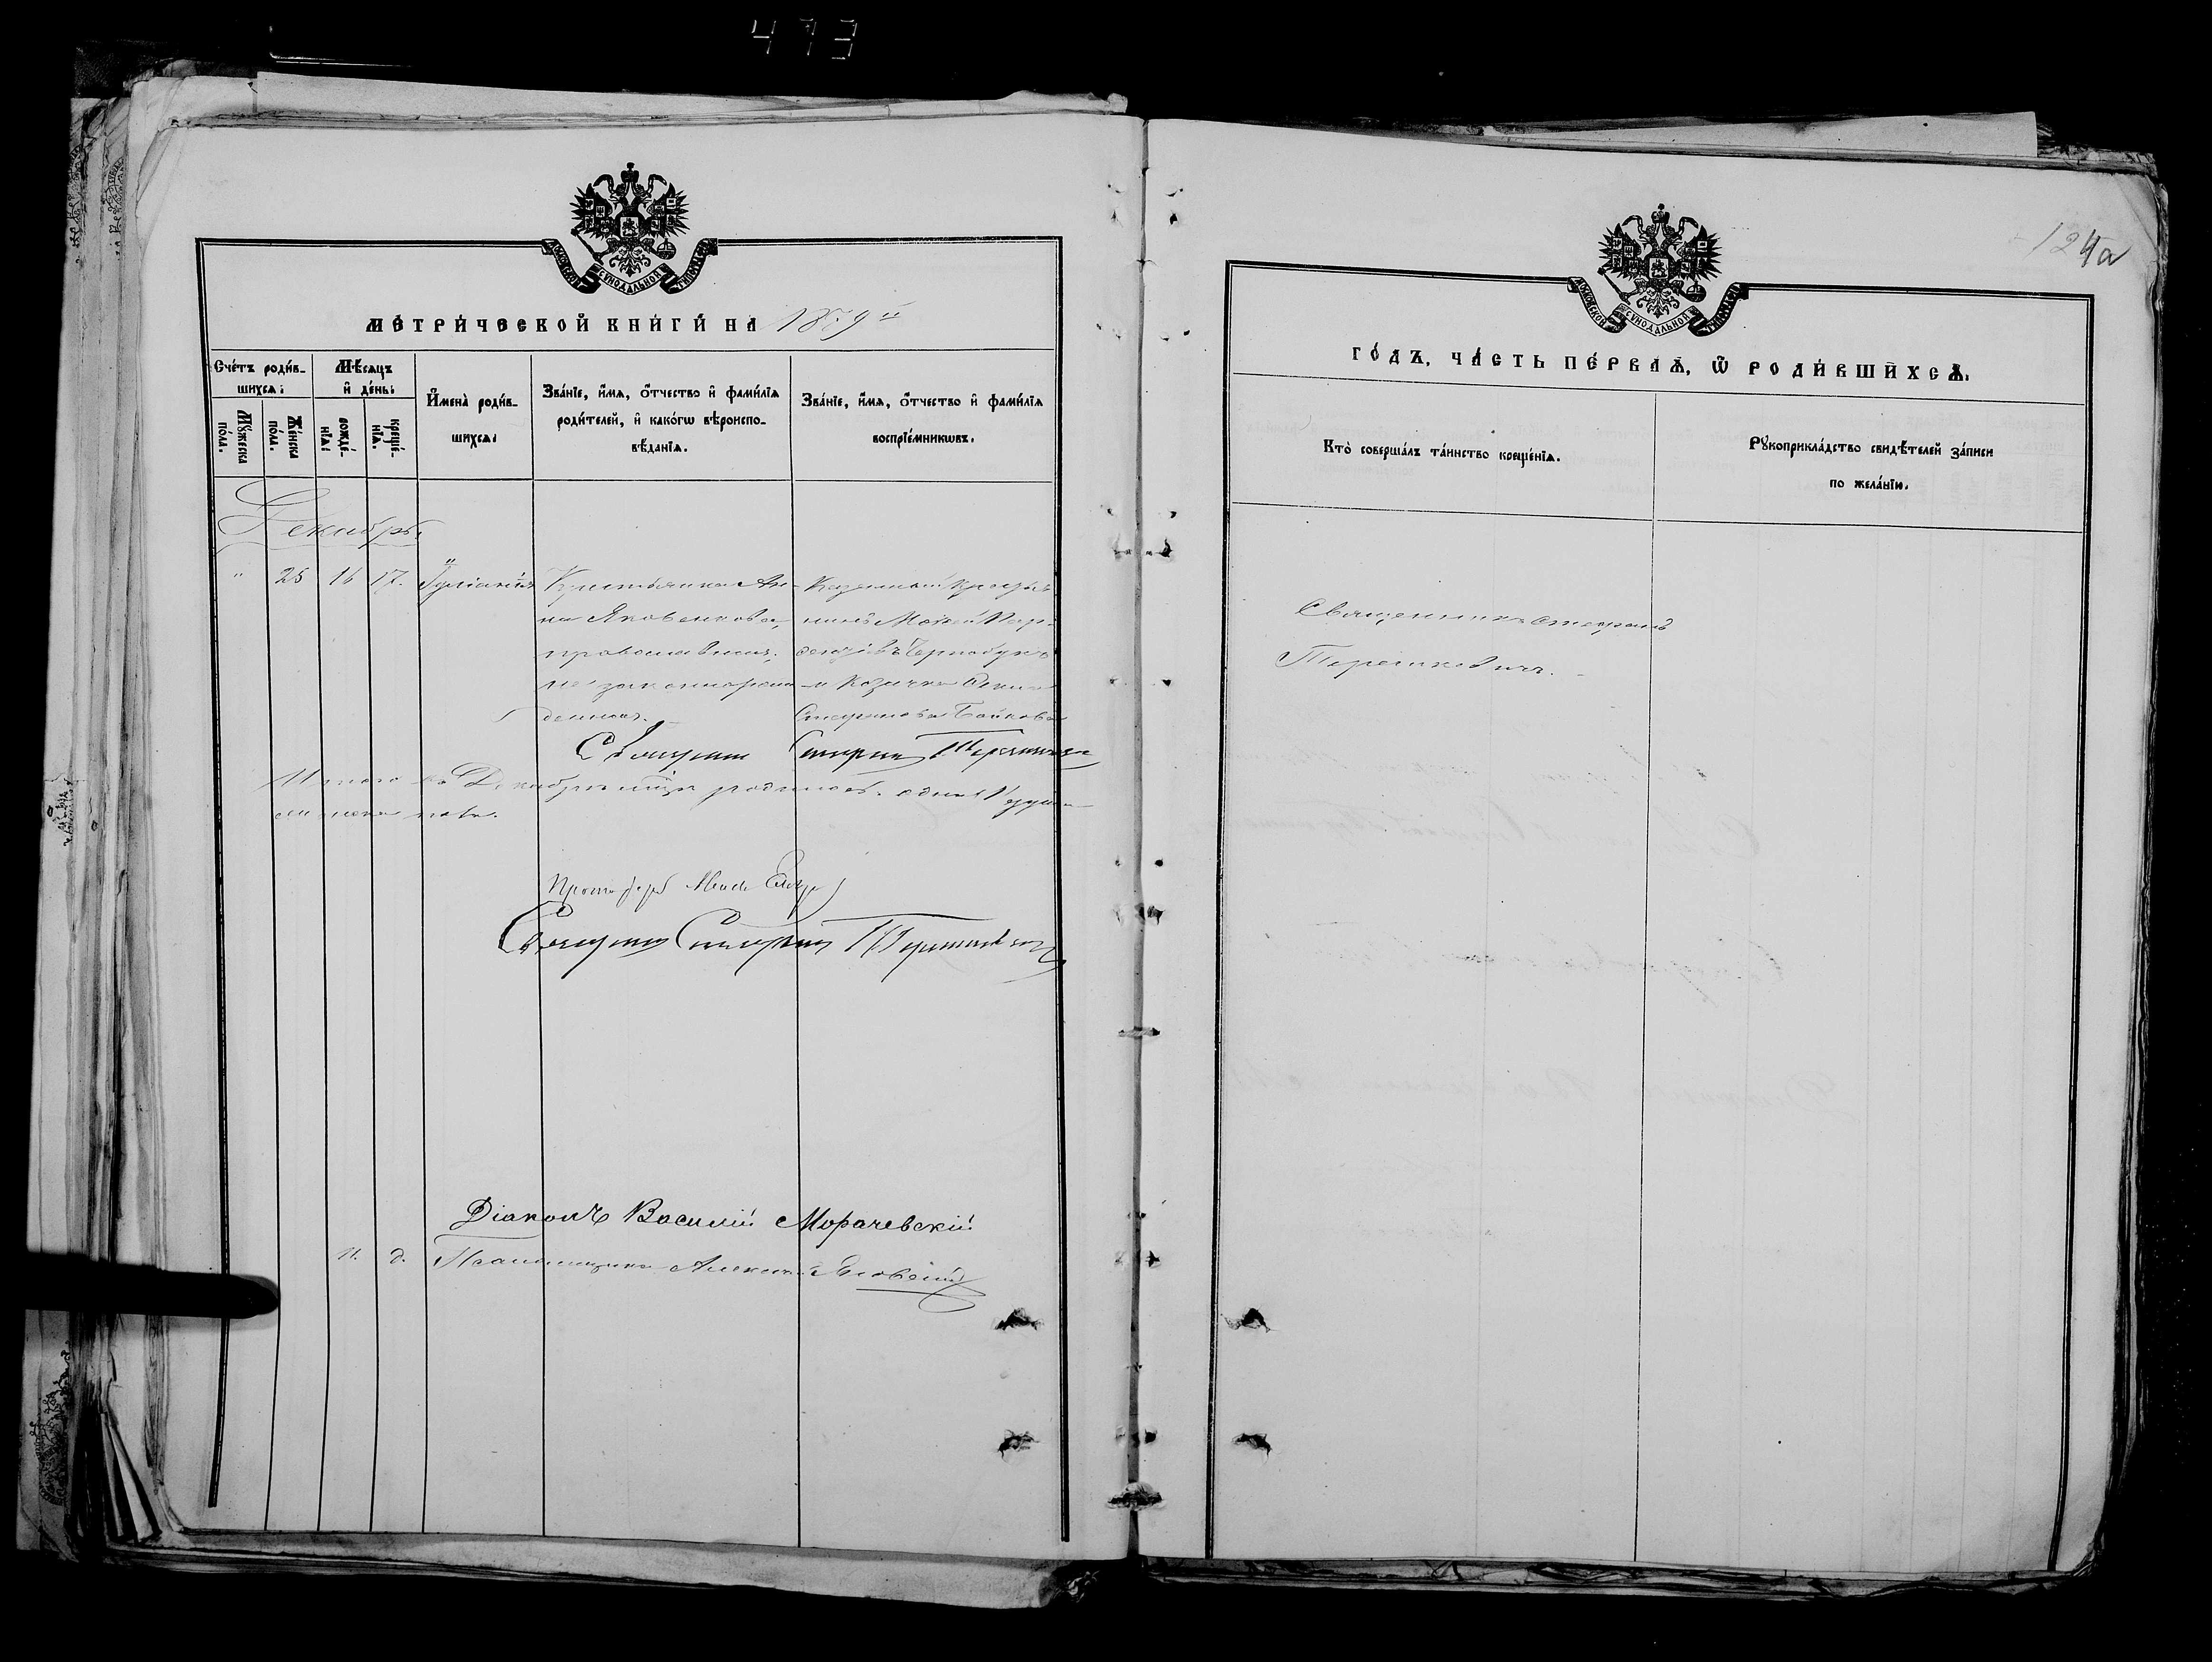 473
МОСКОВСКОЙ СУНОДАЛЬНОЙ ТИПОГРАФІИ
МЕТРИ́ЧЕСКОЙ КНИ́ГИ НА 1879 й
Сче́тъ роди́в-
шихсѧ:
Мꙋ́жеска по́ла.
Же́нска по́ла.
Мѣ́сѧцъ
и҆ де́нь:
рожде́-нїѧ:
креще́-нїѧ.
И҆мена̀ роди́в-
шихсѧ:
Зва́нїе, и҆́мѧ, ѻ҆́тчество и҆ фами́лїѧ
роди́телей, и҆ како́гѡ вѣроиспо-
вѣ́данїѧ.
Зва́нїе, и҆́мѧ, ѻ҆́тчество и҆ фами́лїѧ
воспрїе́мникѡвъ.
Декабрь.
" 25 16 17. Іуліанія
Крестьянка Ан-
на Яковенкова,
православная,
незаконнорож-
денная.
Казенный крестья
нинъ Моисей
Чернобукъ
и козачка
Стефанова Бойкова
Священникъ Стефанъ Терешкевичъ
Итого въ Декабрѣ мѣсяцѣ родилось одна
женска пола.
Протоіерей
Священникъ Стефанъ Терешкевичъ
Діаконъ Василій Морачевскій
И. д. Псаломщика Алексей
124а
МОСКОВСКОЙ СУНОДАЛЬНОЙ ТИПОГРАФІИ
ГО́ДЪ, ЧА́СТЬ ПЕ́РВАѦ, Ѡ҆ РОДИ́ВШИХСѦ.
Кто̀ соверша́лъ та́инство креще́нїѧ.
Рꙋкоприкла́дство свидѣ́телей за́писи
по жела́нїю.
Священникъ Стефанъ
Терешкевичъ.